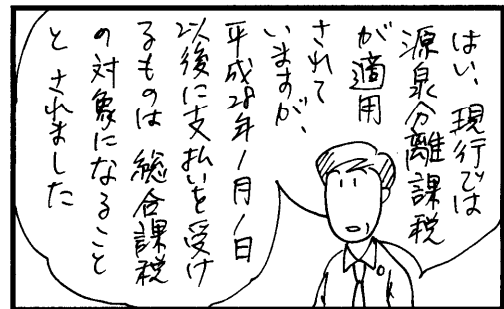 はい、現行では
源泉分離課税
が適用
されて
いますが、
平成28年1月1日
以後に支払いを受け
るものは総合課税
の対象になること
とされました